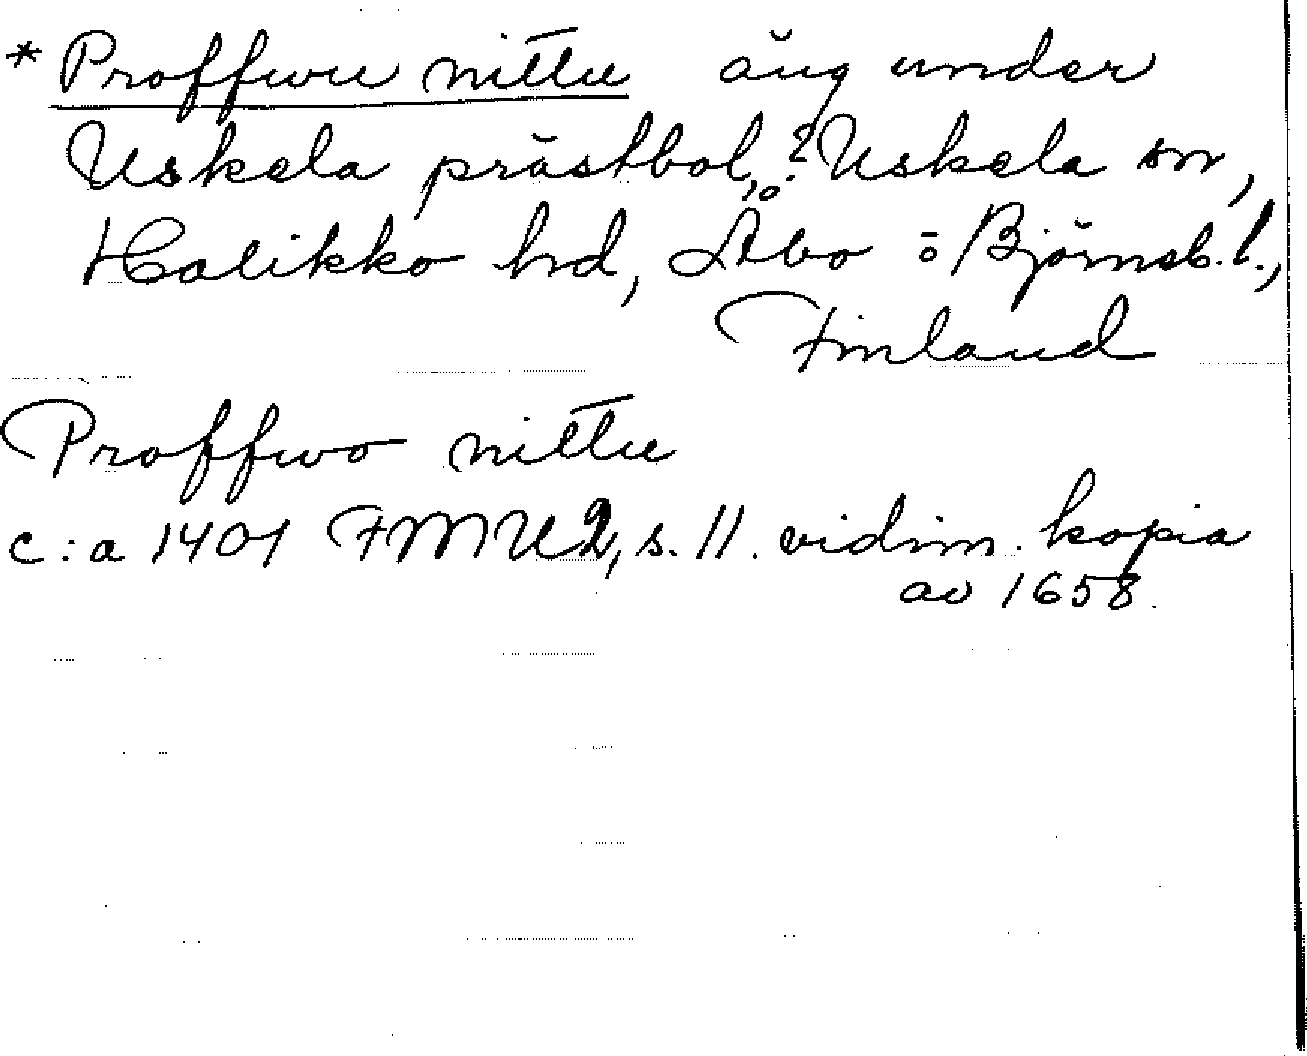 * Proffwu nittu äng under
Uskela prästbol, ? Uskela sn,
Halikko hd, Åbo o Björneb. l.,
Finland
Proffwo nittu
c:a 1401 FMU 2, s. 11. vidim. kopia
av 1658.